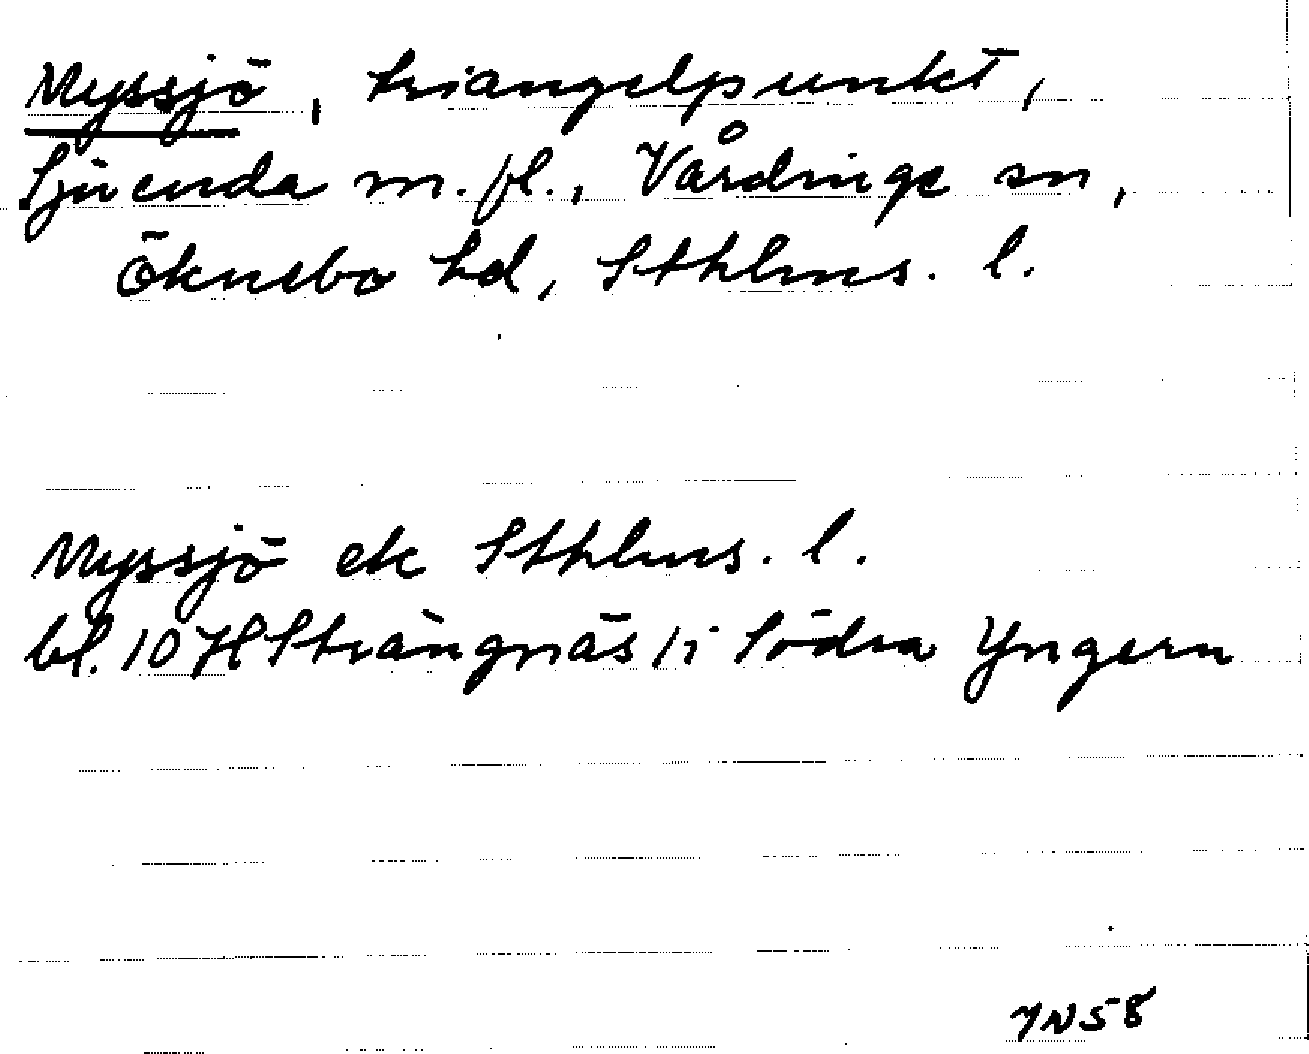 Myssjö, triangelpunkt,
Sjuenda m.fl., Vårdinge sn,
Öknebo hd, Sthlms. l.
Myssjö ek Sthlms. l.
bl. 10 H Strängnäs / i Södra Yngern
YN58